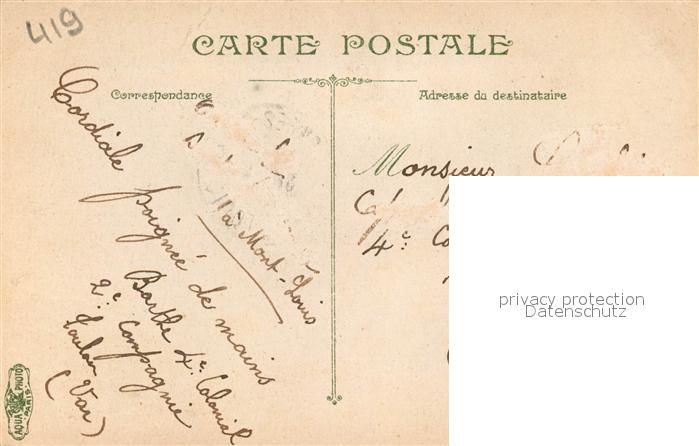 419
CARTE POSTALE
Correspondance
Adresse du destinataire
Cordiale poignée de mains
Barthe 4e Colonial
2e Compagnie
Toulon
(Var)
à Mont-Louis
Monsieur
4e Co
privacy protection
Datenschutz
AQUA PHOTO
PARIS